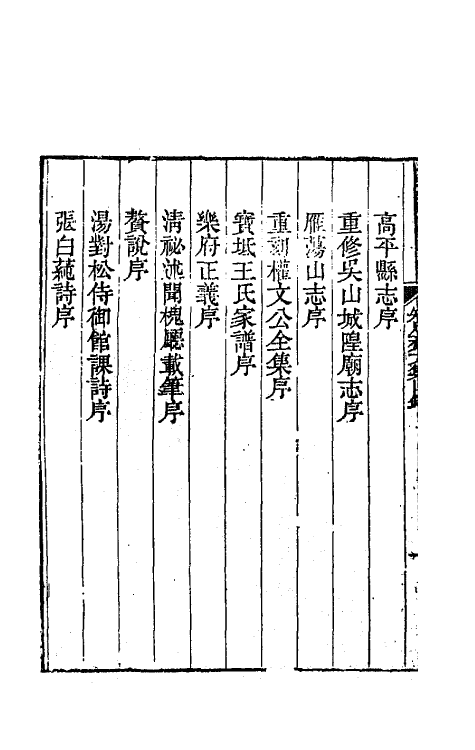 高平縣志序
重修吳山城隍廟志序
雁蕩山志序
重刻權文公全集序
寶坻王氏家譜序
樂府正義序
清祕述聞槐廳載筆序
贅說序
湯對松侍御館課詩序
張白蒓詩序